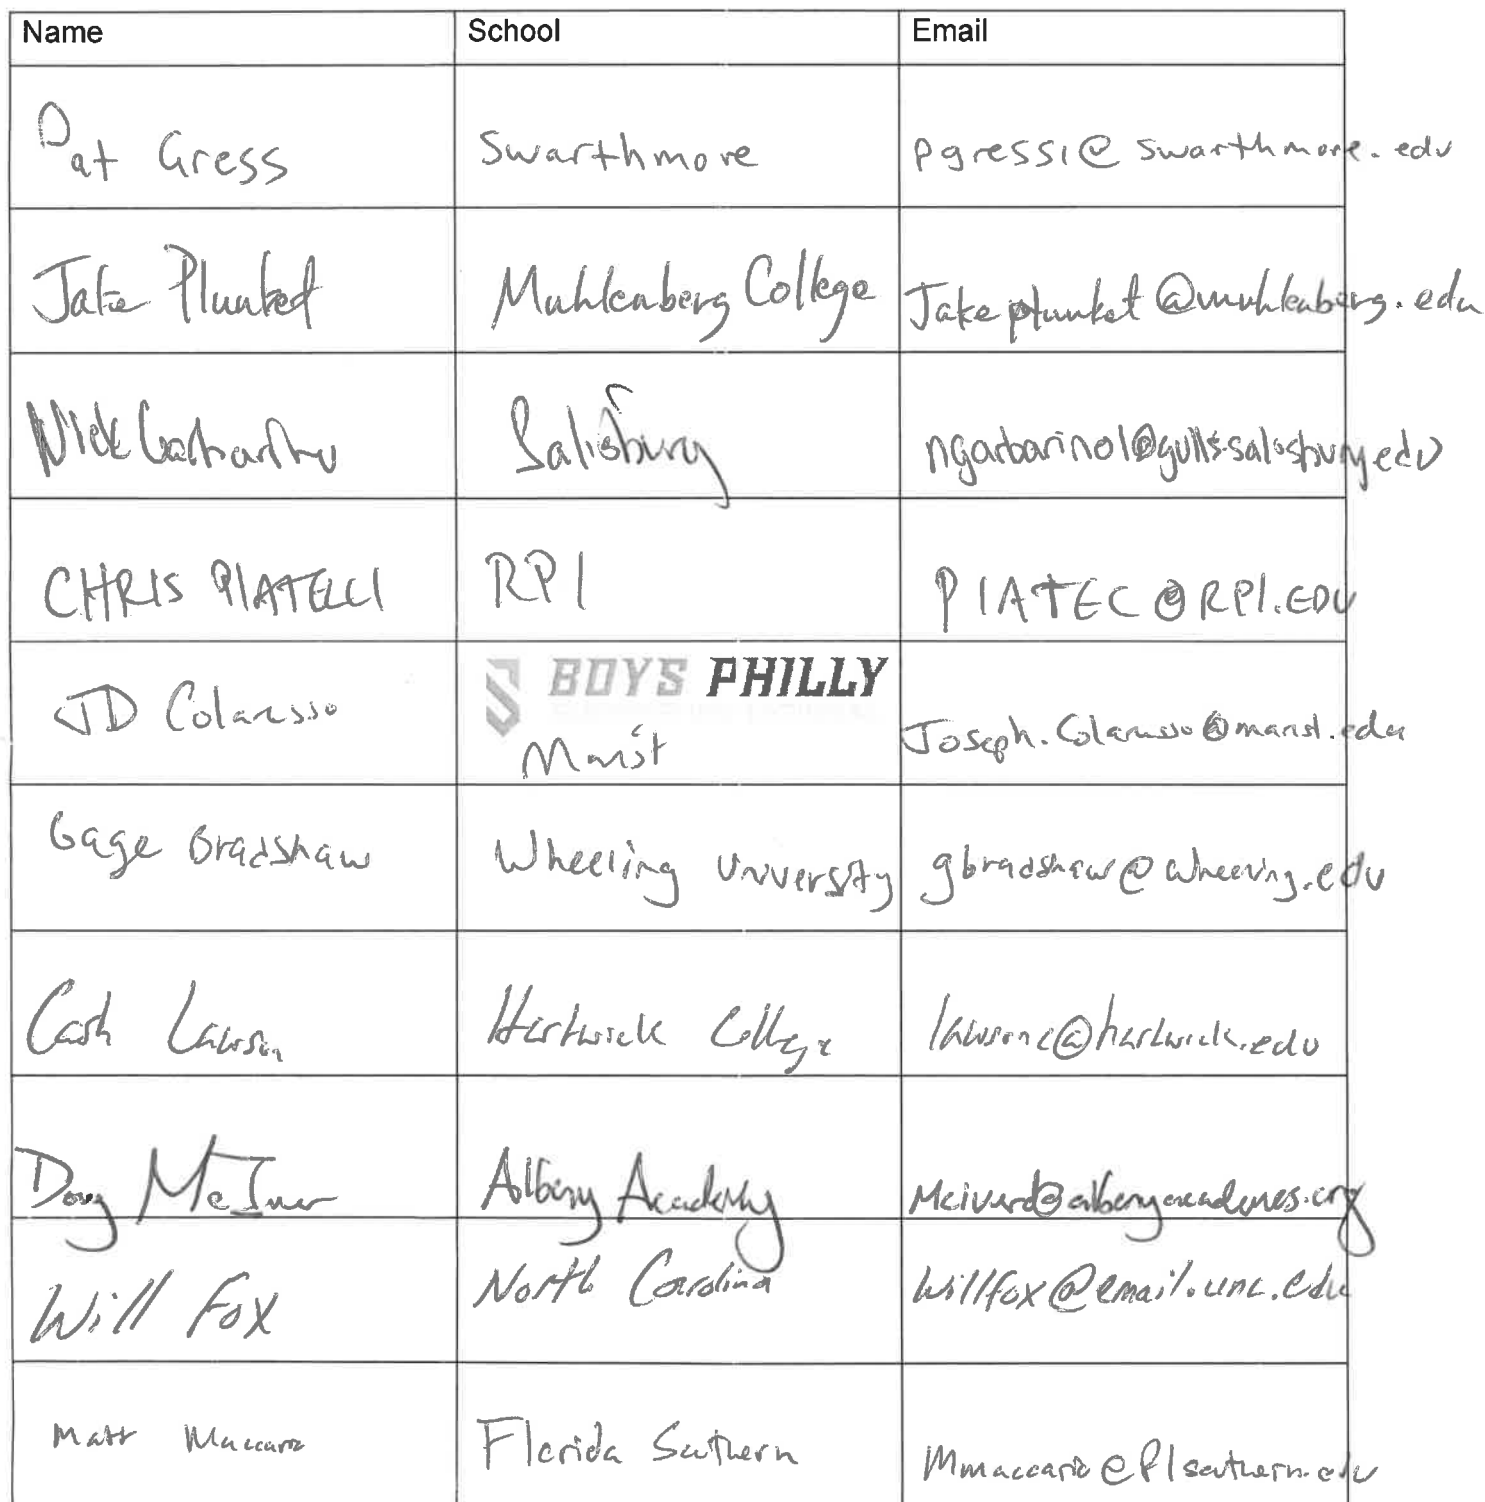 Name School Email
Pat Gress Swarthmore pgress1@swarthmore.edu
Jake Plunket Muhlenberg College Jakeplunket@muhlenberg.edu
Nick Salisbury ngarbarino1@gulls.salisbury.edu
CHRIS PIATELLI RPI PIATEC@RPI.EDU
BOYS PHILLY
JD Colarusso Marist Joseph.Colarusso@marist.edu
Gage Bradshaw Wheeling University gbradshaw@wheeling.edu
Cash Lawson Hartwick College lawsonc@hartwick.edu
Doug Albany Academy
Will Fox North Carolina Willfox@email.unc.edu
Matt Maccaro Florida Southern Mmaccaro@flsouthern.edu